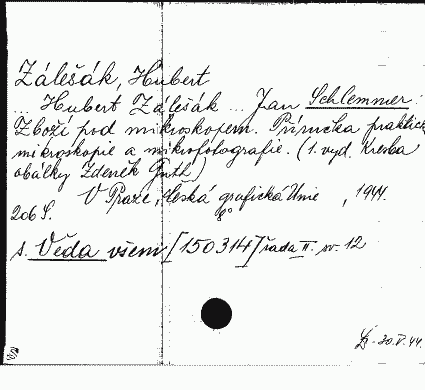 Zálešák, Hubert
... Hubert Zálešák ... Jan Schlemmer:
Zboží pod mikroskopem. Příručka praktick
mikroskopie a mikrofotografie. (1. vyd. Kresba
obálky Zdeněk Guth)
V Praze, Česká grafická Unie, 1944.
8°
206 S.
s. Věda všem [150314] řada II. sv. 12
30.V.44.